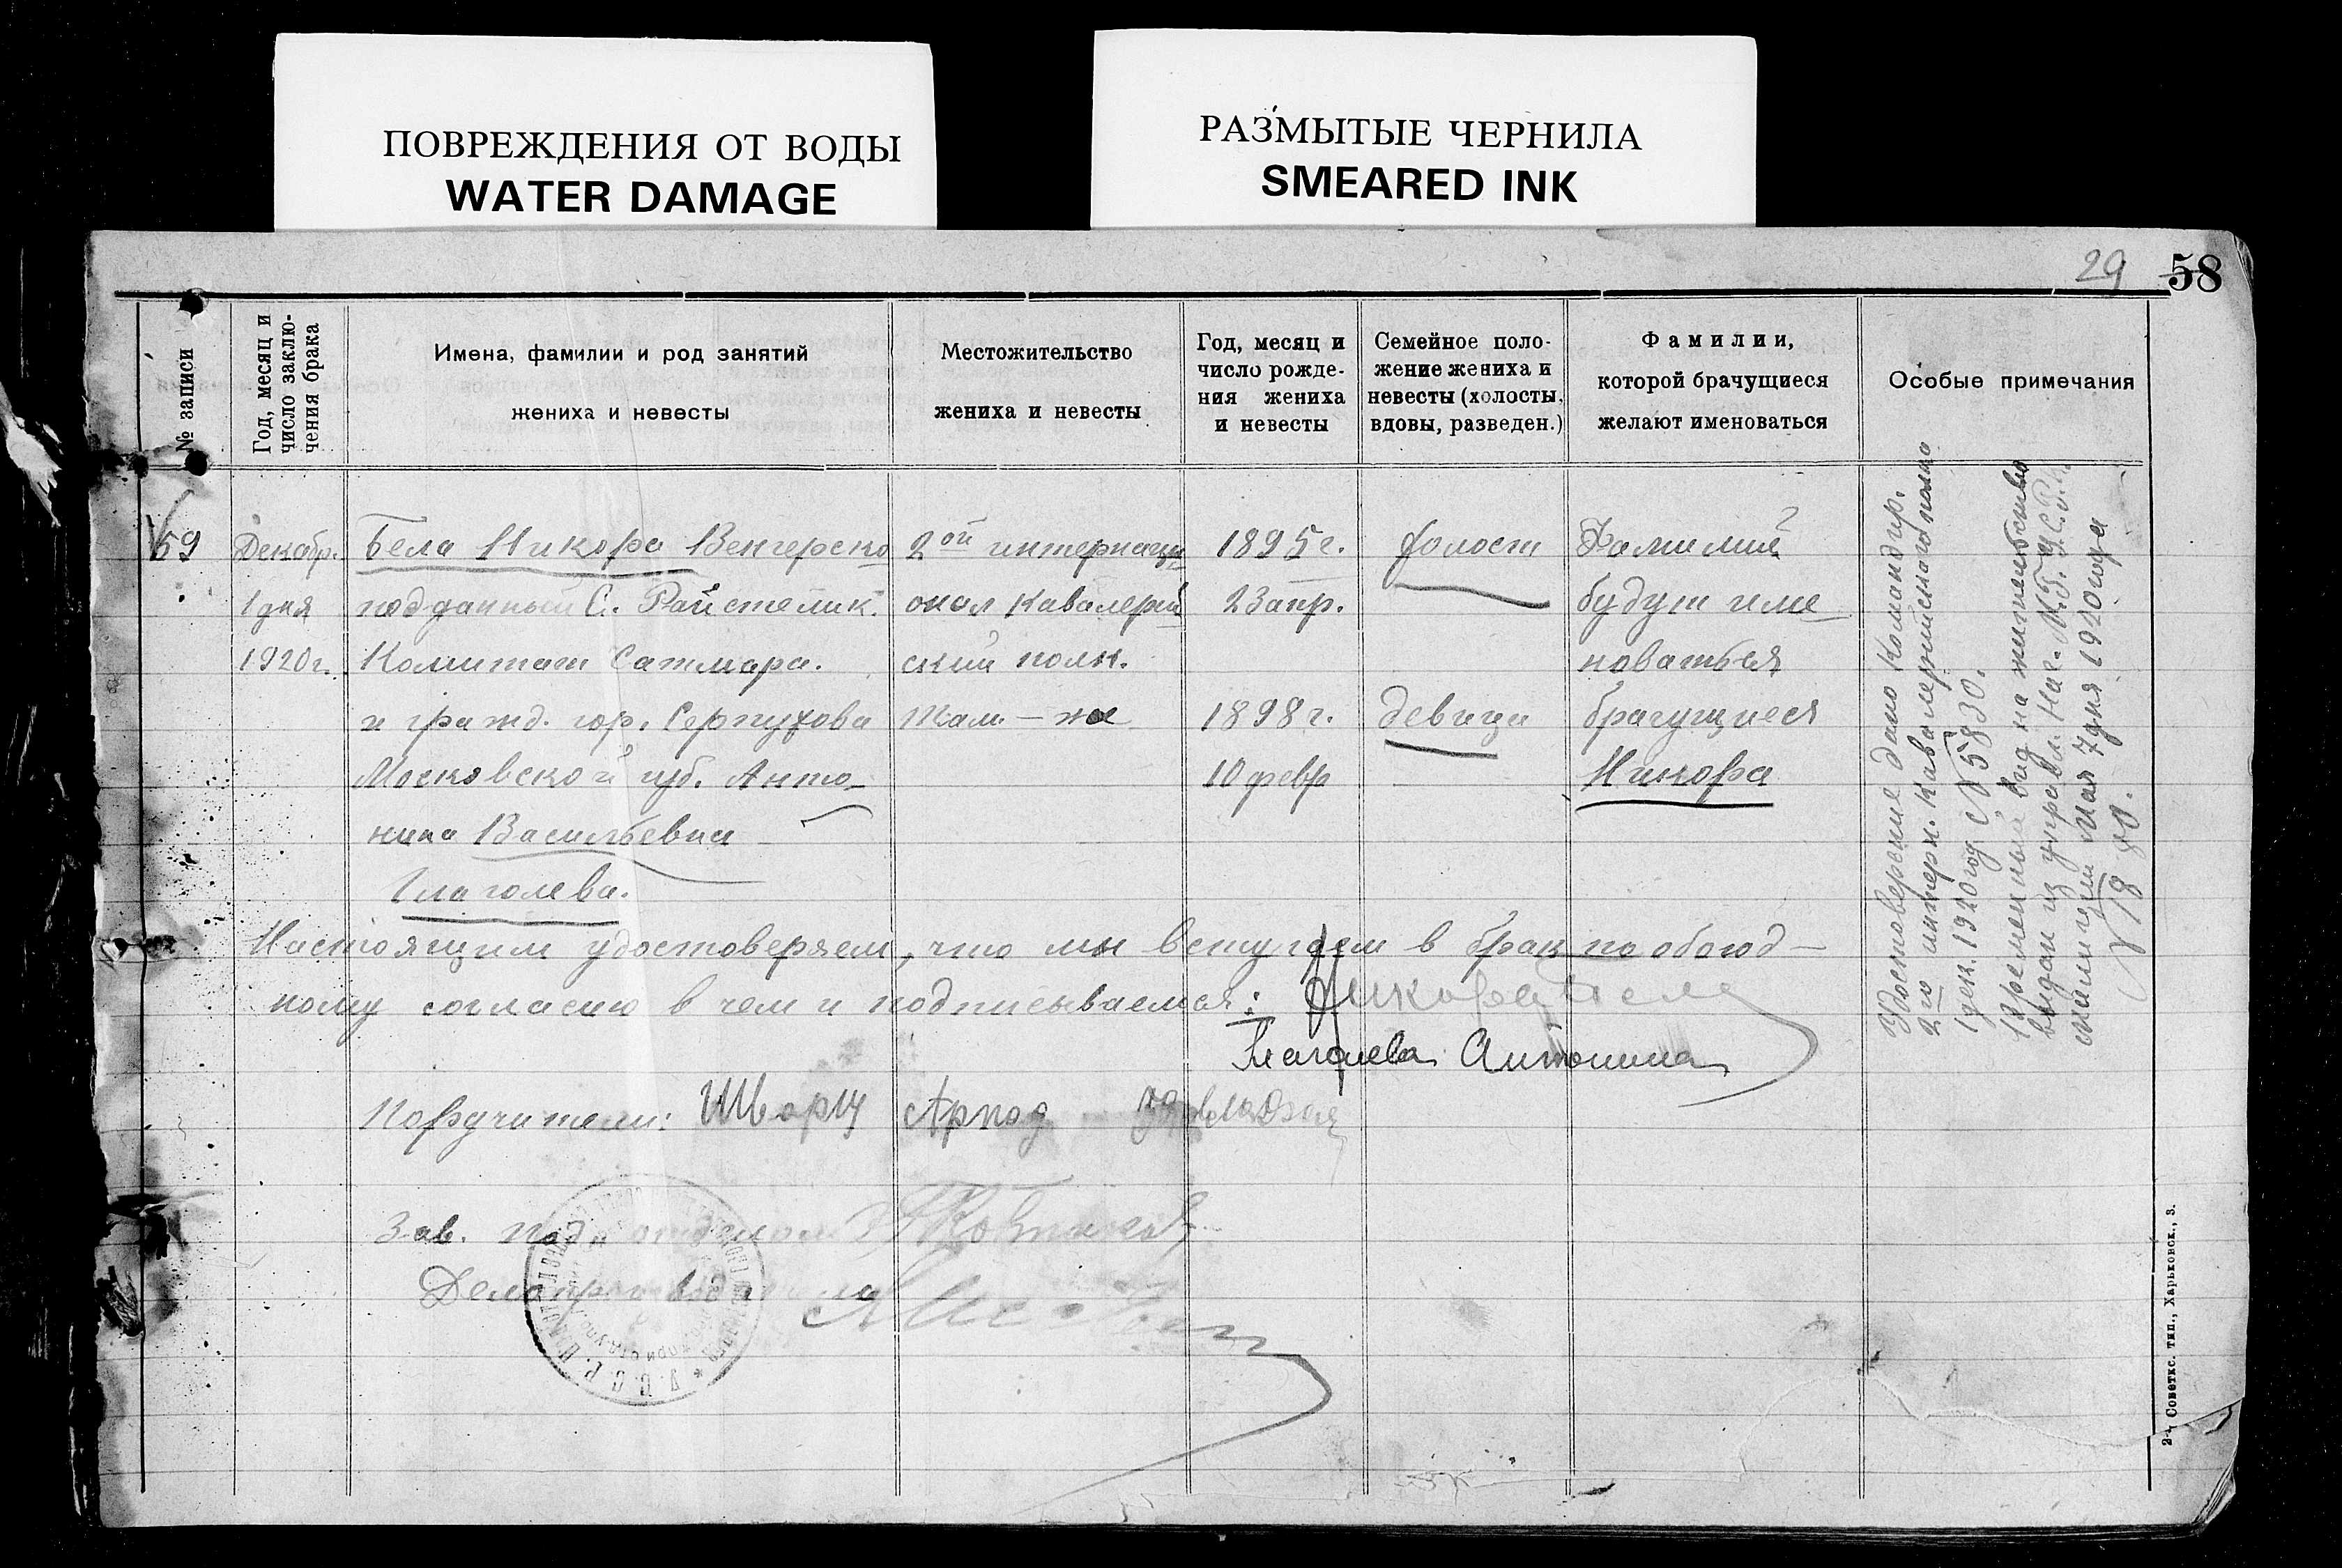 ПОВРЕЖДЕНИЯ ОТ ВОДЫ
WATER DAMAGE
РАЗМЫТЫЕ ЧЕРНИЛА
SMEARED INK
29 58
№ записи
Год, месяц и
число заклю-
чения брака
Имена, фамилии и род занятий
жениха и невесты
Местожительство
жениха и невесты
Год, месяц и
число рожде-
ния жениха
и невесты
Семейное поло-
жение жениха и
невесты (холосты,
вдовы, разведен.)
Фамилии,
которой брачущиеся
желают именоваться
Особые примечания
59
Декабр.
1 дня
1920 г.
Бела Никора Венгерско
подданный С.
Комитат Сатмара.
и гражд. гор. Серпухова
Московской губ. Анто-
нина Васильевна
Глаголева.
2ой интернаци
онал кавалерий
ский полк.
Там-же
1895 г.
23 апр.
1898 г.
10 февр
холост
девица
Фамилий
будут име
новаться
брачущиеся
Никора
Удостоверение дано Командир.
2го интерн. кавалерийского полка
1 дек. 1920 год № 5830.
Временный вид на жительство
выдан из управл. Нач.
милиции Мая 7 дня 1920 года
№ 1880.
Настоящим удостоверяем, что мы вступаем в брак по обоюд-
ному согласию в чем и подписываемся: Никора Бела
Глаголева Антонина
Поручители: Шварц Арпад
Зав. под отделом
Делопроизводитель
У.С.С.Р.
2-я Советск. тип., Харьковск., 3.